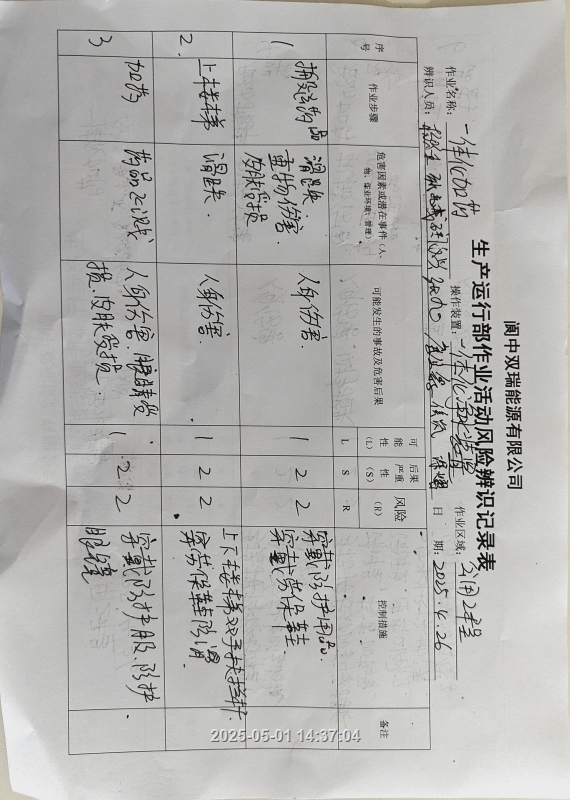 阆中双瑞能源有限公司
生产运行部作业活动风险辨识记录表
作业名称：一体化加药 操作装置：一体化净水装置 作业区域：公用工程
辨识人员： 日 期：2025.4.26
序号 作业步骤 危害因素或潜在事件（人、物、作业环境、管理） 可能发生的事故及危害后果 可能性（L） 后果严重性（S） 风险（R） 控制措施 备注
L S R
1 搬运药品 滑跌. 重物伤害. 皮肤受损 人身伤害. 1 2 2 穿戴防护用品. 穿戴劳保鞋
2. 上楼梯 滑跌. 人身伤害. 1 2 2 上下楼梯双手扶栏杆. 穿劳保鞋防滑
3 加药 药品飞溅 人身伤害 眼睛受损. 皮肤受损. 1 2 2 穿戴防护服. 防护眼镜.
2025-05-01 14:37:04